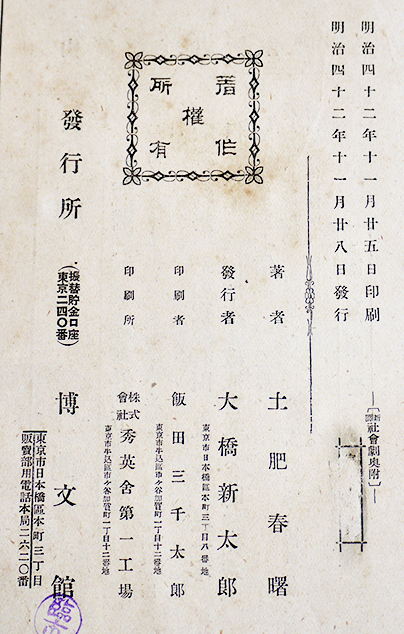 明治四十二年十一月廿五日印刷
明治四十二年十一月廿八日發行
社會劇奧附
著作權所有
著者 土肥春曙
發行者 大橋新太郎
東京市日本橋區本町三丁目八番地
印刷者 飯田三千太郎
東京市牛込區市ヶ谷加賀町一丁目十二番地
印刷所 株式會社 秀英舍第一工場
東京市牛込區市ヶ谷加賀町一丁目十二番地
發行所 博文館
(振替貯金口座東京二四〇番)
東京市日本橋區本町三丁目
販賣部用電話本局二六二〇番